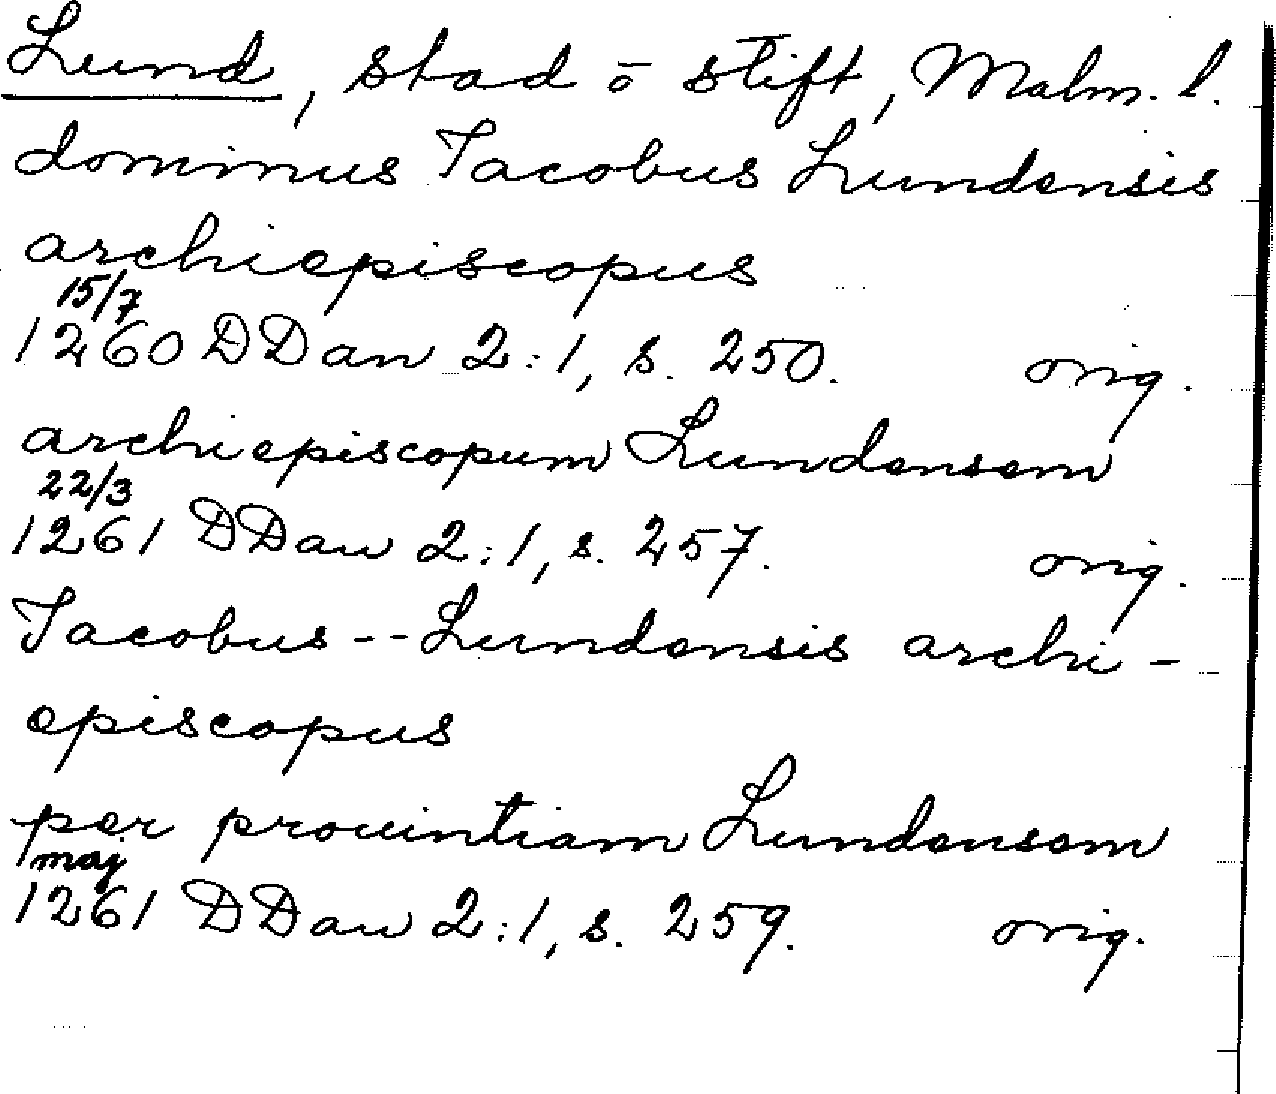 Lund, stad o stift, Malm. l.
dominus Jacobus Lundensis
archiepiscopus
15/7
1260 DDan 2:1, s. 250. orig.
archiepiscopum Lundensem
22/3
1261 DDan 2:1, s. 257. orig.
Jacobus -- Lundensis archi-
episcopus
per prouintiam Lundensem
maj
1261 DDan 2:1, s. 259. orig.